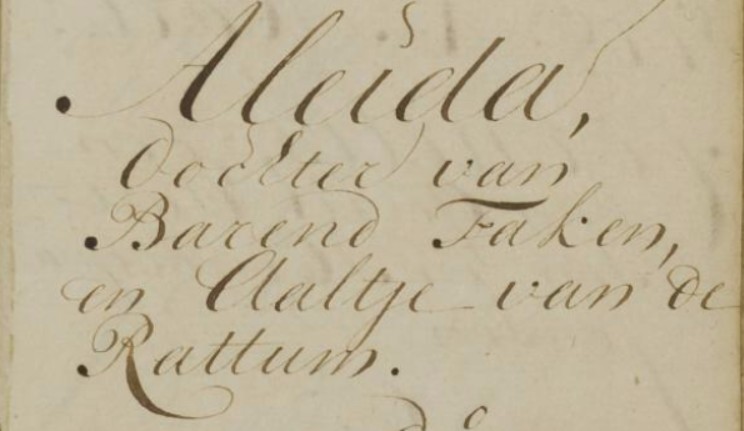 Aleida,
dochter van
Barend Faken,
en Aaltje van de
Rattum.